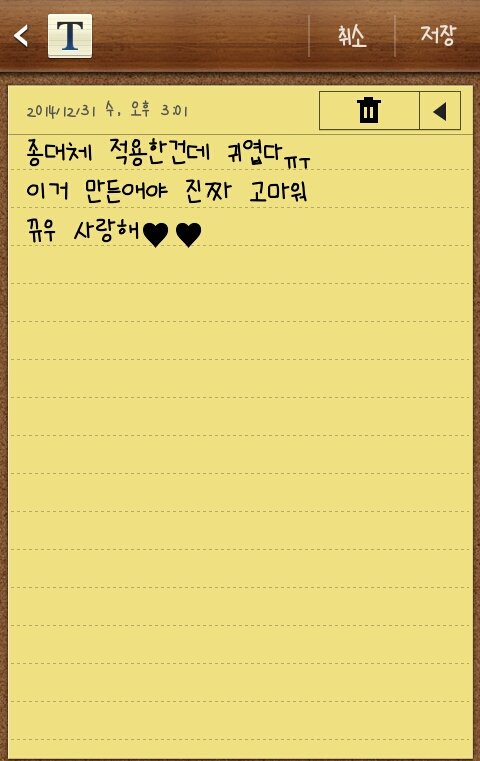 T 취소 저장
2014/12/31 수, 오후 3:01
종대체 적용한건데 귀엽다ㅠㅜ
이거 만든애야 진짜 고마워
뀨우 사랑해♥♥